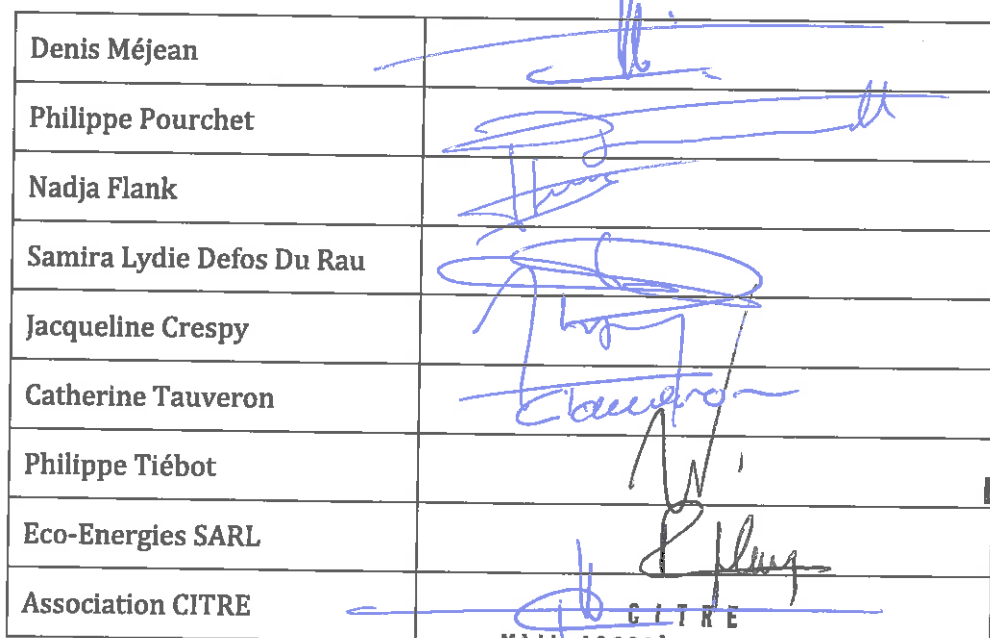 Denis Méjean
Philippe Pourchet
Nadja Flank
Samira Lydie Defos Du Rau
Jacqueline Crespy
Catherine Tauveron
Philippe Tiébot
Eco-Energies SARL
Association CITRE
CITRE